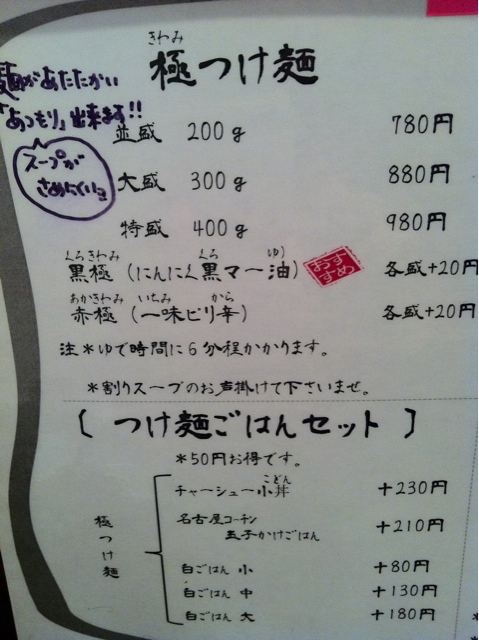 きわみ
極つけ麺
麺があたたかい
「あつもり」出来ます!!
スープが
さめにくい
並盛 200g 780円
大盛 300g 880円
特盛 400g 980円
くろきわみ くろ ゆ
黒極(にんにく黒マー油) おすすめ 各盛+20円
あかきわみ いちみ から
赤極(一味ピリ辛) 各盛+20円
注*ゆで時間に6分程かかります。
*割りスープのお声掛けて下さいませ。
[つけ麺ごはんセット]
*50円お得です。
こどん
チャーシュー小丼 +230円
名古屋コーチン
玉子かけごはん +210円
極つけ麺
白ごはん 小 +80円
白ごはん 中 +130円
白ごはん 大 +180円